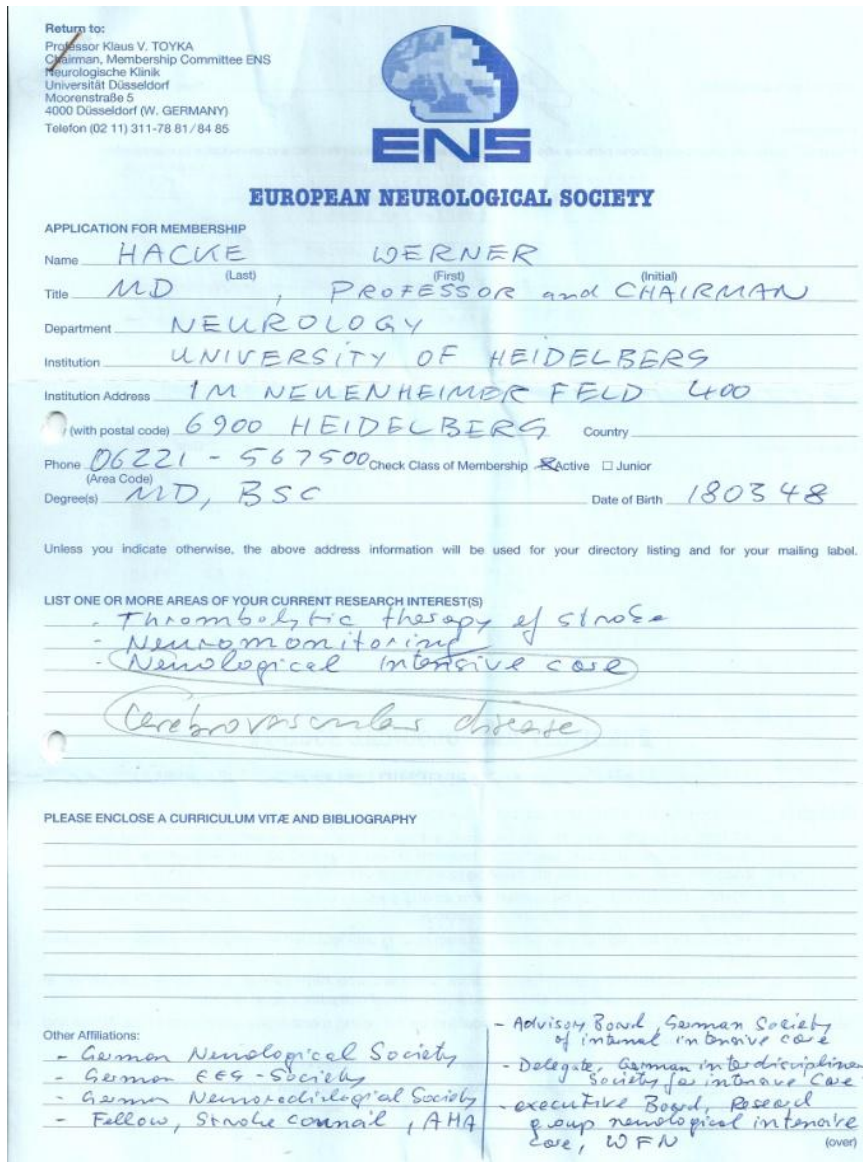 Return to:
Professor Klaus V. TOYKA
Chairman, Membership Committee ENS
Neurologische Klinik
Universität Düsseldorf
Moorenstraße 5
4000 Düsseldorf (W. GERMANY)
Telefon (02 11) 311-78 81/84 85
ENS
EUROPEAN NEUROLOGICAL SOCIETY
APPLICATION FOR MEMBERSHIP
Name HACKE WERNER
(Last) (First) (Initial)
Title MD, PROFESSOR and CHAIRMAN
Department NEUROLOGY
Institution UNIVERSITY OF HEIDELBERG
Institution Address IM NEUENHEIMER FELD 400
(with postal code) 6900 HEIDELBERG Country
Phone 06221 - 567500 Check Class of Membership Active Junior
(Area Code)
Degree(s) MD, BSC Date of Birth 180348
Unless you indicate otherwise, the above address information will be used for your directory listing and for your mailing label.
LIST ONE OR MORE AREAS OF YOUR CURRENT RESEARCH INTEREST(S)
- Thrombolytic therapy of stroke
- Neuromonitoring
- Neurological intensive care
Cerebrovascular disease
PLEASE ENCLOSE A CURRICULUM VITÆ AND BIBLIOGRAPHY
Other Affiliations:
- German Neurological Society
- German EEG-Society
- German Neuroradiological Society
- Fellow, Stroke council, AHA
- Advisory Board, German Society
of internal intensive care
- Delegate, German interdisciplinar
Society for intensive Care
- executive Board, Research
group neurological intensive
care, WFN
(over)